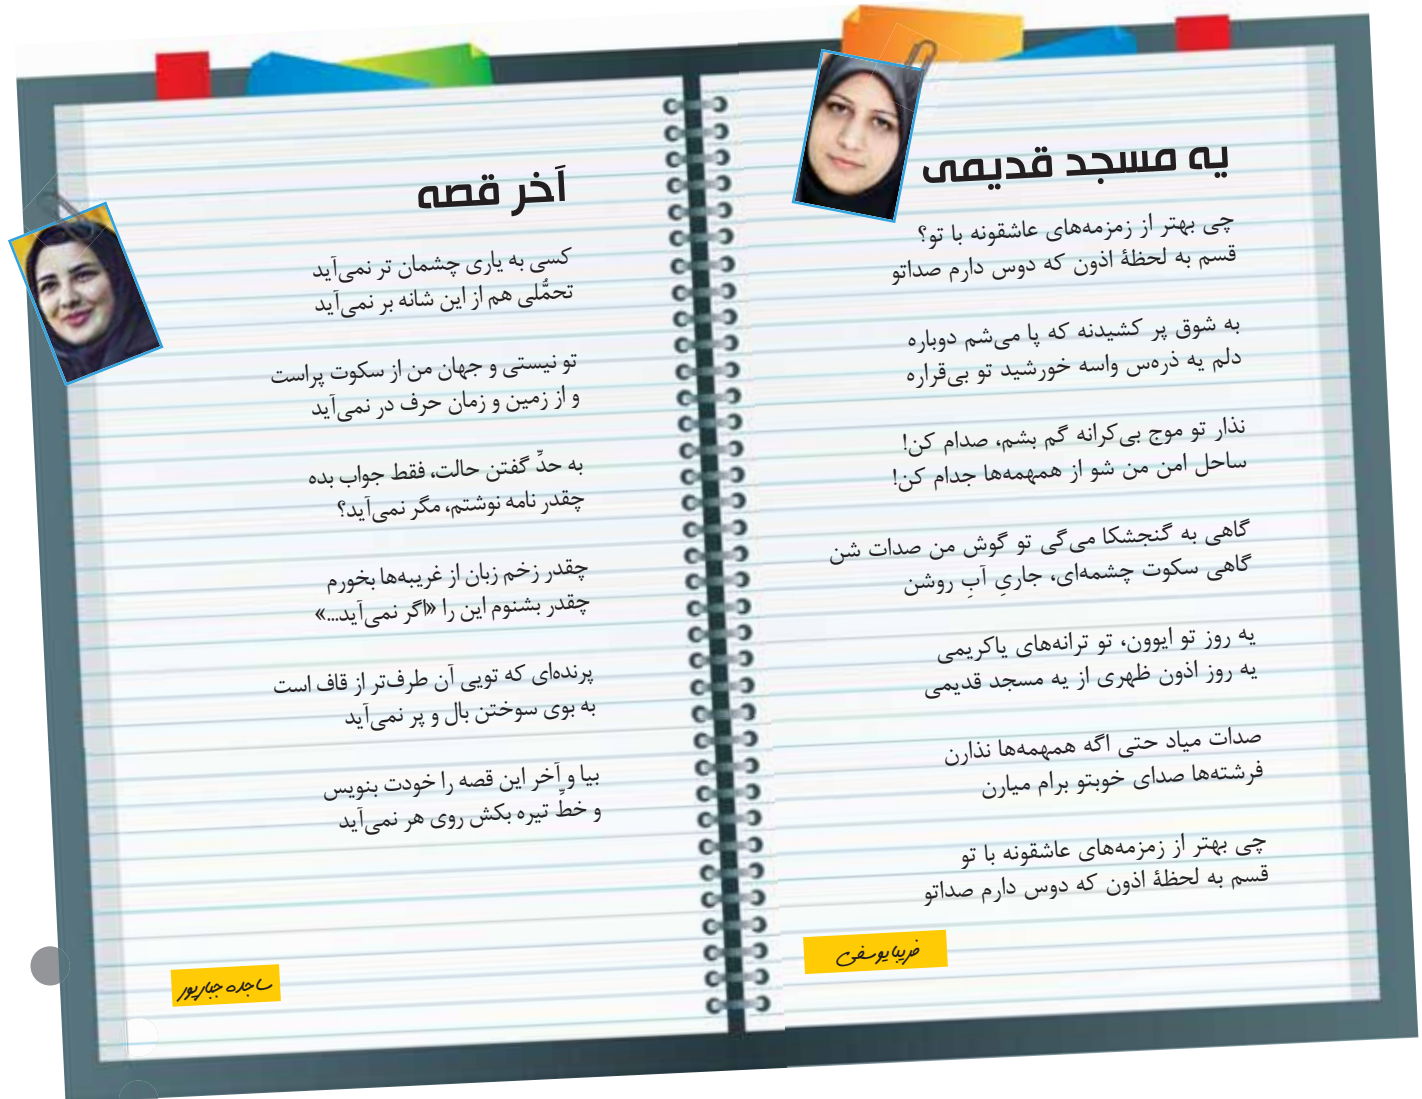 یه مسجد قدیمی
چی بهتر از زمزمه‌های عاشقونه با تو؟
قسم به لحظهٔ اذون که دوس دارم صداتو
به شوق پر کشیدنه که پا می‌شم دوباره
دلم یه ذره‌س واسه خورشید تو بی‌قراره
نذار تو موج بی‌کرانه گم بشم، صدام کن!
ساحل امن من شو از همهمه‌ها جدام کن!
گاهی به گنجشکا می‌گی تو گوش من صدات شن
گاهی سکوت چشمه‌ای، جاریِ آبِ روشن
یه روز تو ایوون، تو ترانه‌های یاکریمی
یه روز اذون ظهری از یه مسجد قدیمی
صدات میاد حتی اگه همهمه‌ها نذارن
فرشته‌ها صدای خوبتو برام میارن
چی بهتر از زمزمه‌های عاشقونه با تو
قسم به لحظهٔ اذون که دوس دارم صداتو
فریبا یوسفی
آخر قصه
کسی به یاری چشمان تر نمی‌آید
تحمّلی هم از این شانه بر نمی‌آید
تو نیستی و جهان من از سکوت پراست
و از زمین و زمان حرف در نمی‌آید
به حدِّ گفتن حالت، فقط جواب بده
چقدر نامه نوشتم، مگر نمی‌آید؟
چقدر زخم زبان از غریبه‌ها بخورم
چقدر بشنوم این را «اگر نمی‌آید...»
پرنده‌ای که تویی آن طرف‌تر از قاف است
به بوی سوختن بال و پر نمی‌آید
بیا و آخر این قصه را خودت بنویس
و خطِّ تیره بکش روی هر نمی‌آید
ساجده جبارپور